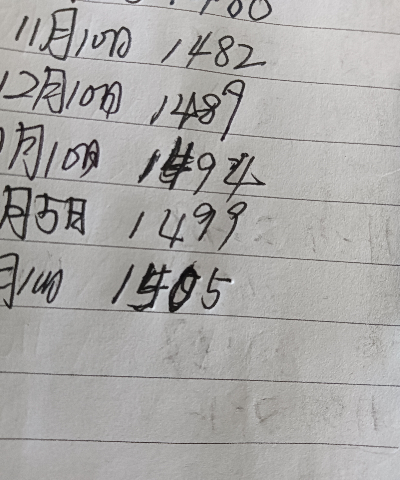 11月10日 1482
12月10日 1489
月10日 1494
月5日 1499
月10日 1505